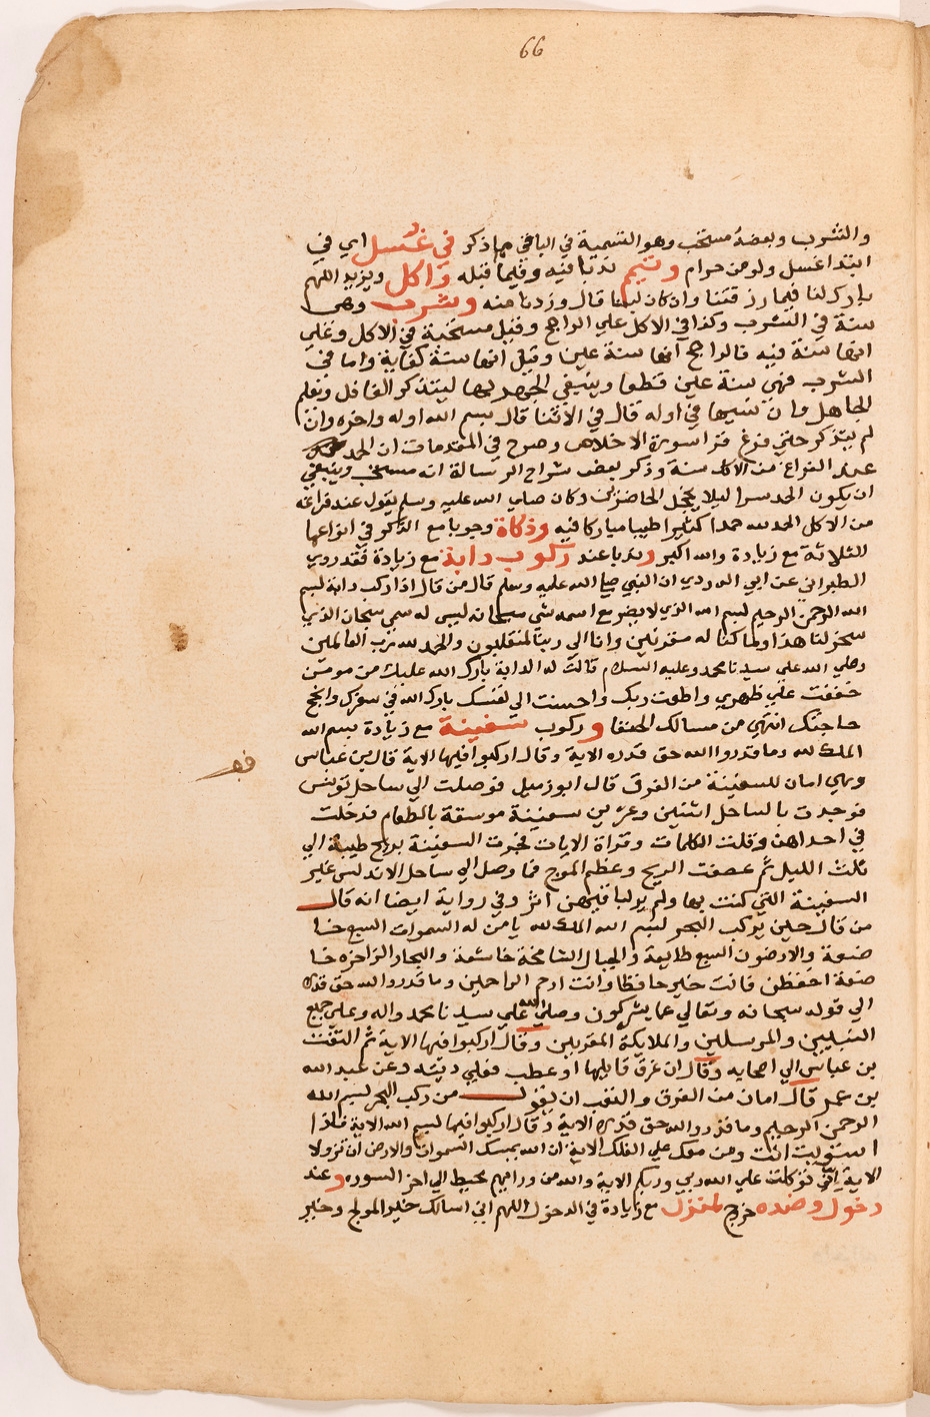 66
والشرب وبعضه مستحب وهو التسمية في الباقي مما ذكر في غسل اي في
ابتدا غسل ولو من حرام وتيمم ندبا فيه وفيما قبله واكل ويزيد اللهم
بارك لنا فيما رزقتنا وان كان لبنا قال وزدنا منه وشرب وهي
سنة في الشرب وكذا في الاكل علي الراجح وقيل مستحبة في الاكل وعلي
انها سنة فيه فالراجح انها سنة عين وقيل انها سنة كفاية واما في
الشرب فهي سنة عين قطعا وينبغي الجهر بها ليتذكر الغافل ويعلم
الجاهل وان نسيها في اوله قال في الاثنا قال بسم الله اوله واخره وان
لم يتذكر حتي فرغ قرا سورة الاخلاص وصرح في المقدمات ان الحمد
عند الفراغ من الاكل سنة وذكر بعض شراح الرسالة انه مستحب وينبغي
ان يكون الحمد سرا ليلا يخجل الحاضرين وكان صلي الله عليه وسلم يقول عند فراغه
من الاكل الحمد لله حمدا كثيرا طيبا مباركا فيه وذكاة وجوبا مع الذكر في انواعها
الثلاثة مع زيادة والله اكبر وندبا عند ركوب دابة مع زيادة فقد روي
الطبراني عن ابي الدردي ان النبي صلي الله عليه وسلم قال من قال اذا ركب دابة بسم
الله الرحمن الرحيم بسم الله الذي لا يضر مع اسمه شي سبحانه ليس له سمي سبحان الذي
سخر لنا هذا وما كنا له مقرنين وانا الي ربنا لمنقلبون والحمد لله رب العالمين
وصلي الله علي سيدنا محمد وعليه السلام قالت له الدابة بارك الله عليك من مومن
خففت علي ظهري واطعت ربك واحسنت الي نفسك بارك الله في سفرك وانجح
حاجتك انتهي من مسالك الحنفا وركوب سفينة مع زيادة بسم الله
الملك لله وما قدروا الله حق قدره الاية وقال اركبوا فيها الاية قال بن عباس
وهي امان للسفينة من الغرق قال ابو زميل فوصلت الي ساحل تونس
فوجدت بالساحل اثنين وعشرين سفينة موسقة بالطعام فدخلت
في احداهن وقلت الكلمات وقراة الايات فجرت السفينة بريح طيبة الي
ثلث الليل ثم عصفت الريح وعظم الموج فما وصل الي ساحل الاندلس غير
السفينة التي كنت بها ولم ير لباقيهن اثر وفي رواية ايضا انه قال
من قال حين يركب البحر بسم الله الملك لله يا من له السموات السبع خا
ضعة والارضون السبع طايعة والجبال الشامخة خاشعة والبحار الزاخرة خا
ضعة احفظن فانت خير حافظا وانت ارحم الراحمين وما قدروا الله حق قدره
الي قوله سبحانه وتعالي عما يشركون وصلي الله علي سيدنا محمد واله وعلي جميع
النبيين والمرسلين والملايكة المقربين وقال اركبوا فيها الاية ثم التفت
بن عباس الي اصحابه وقال ان غرق قايلها او عطب فعلي ديته وعن عبد الله
بن عمر قال امان من الغرق والتعب ان يقول من ركب البحر بسم الله
الرحمن الرحيم وما قدروا الله حق قدره الاية وقال اركبوا فيها بسم الله الاية فاذا
استويت انت ومن معك علي الفلك الاية ان الله يمسك السموات والارض ان تزولا
الاية اني توكلت علي الله ربي وربكم الاية والله من ورائهم محيط الي اخر السوره وعند
دخول وضده خرج لمنزل مع زيادة في الدخول اللهم اني اسالك خير المولج وخير